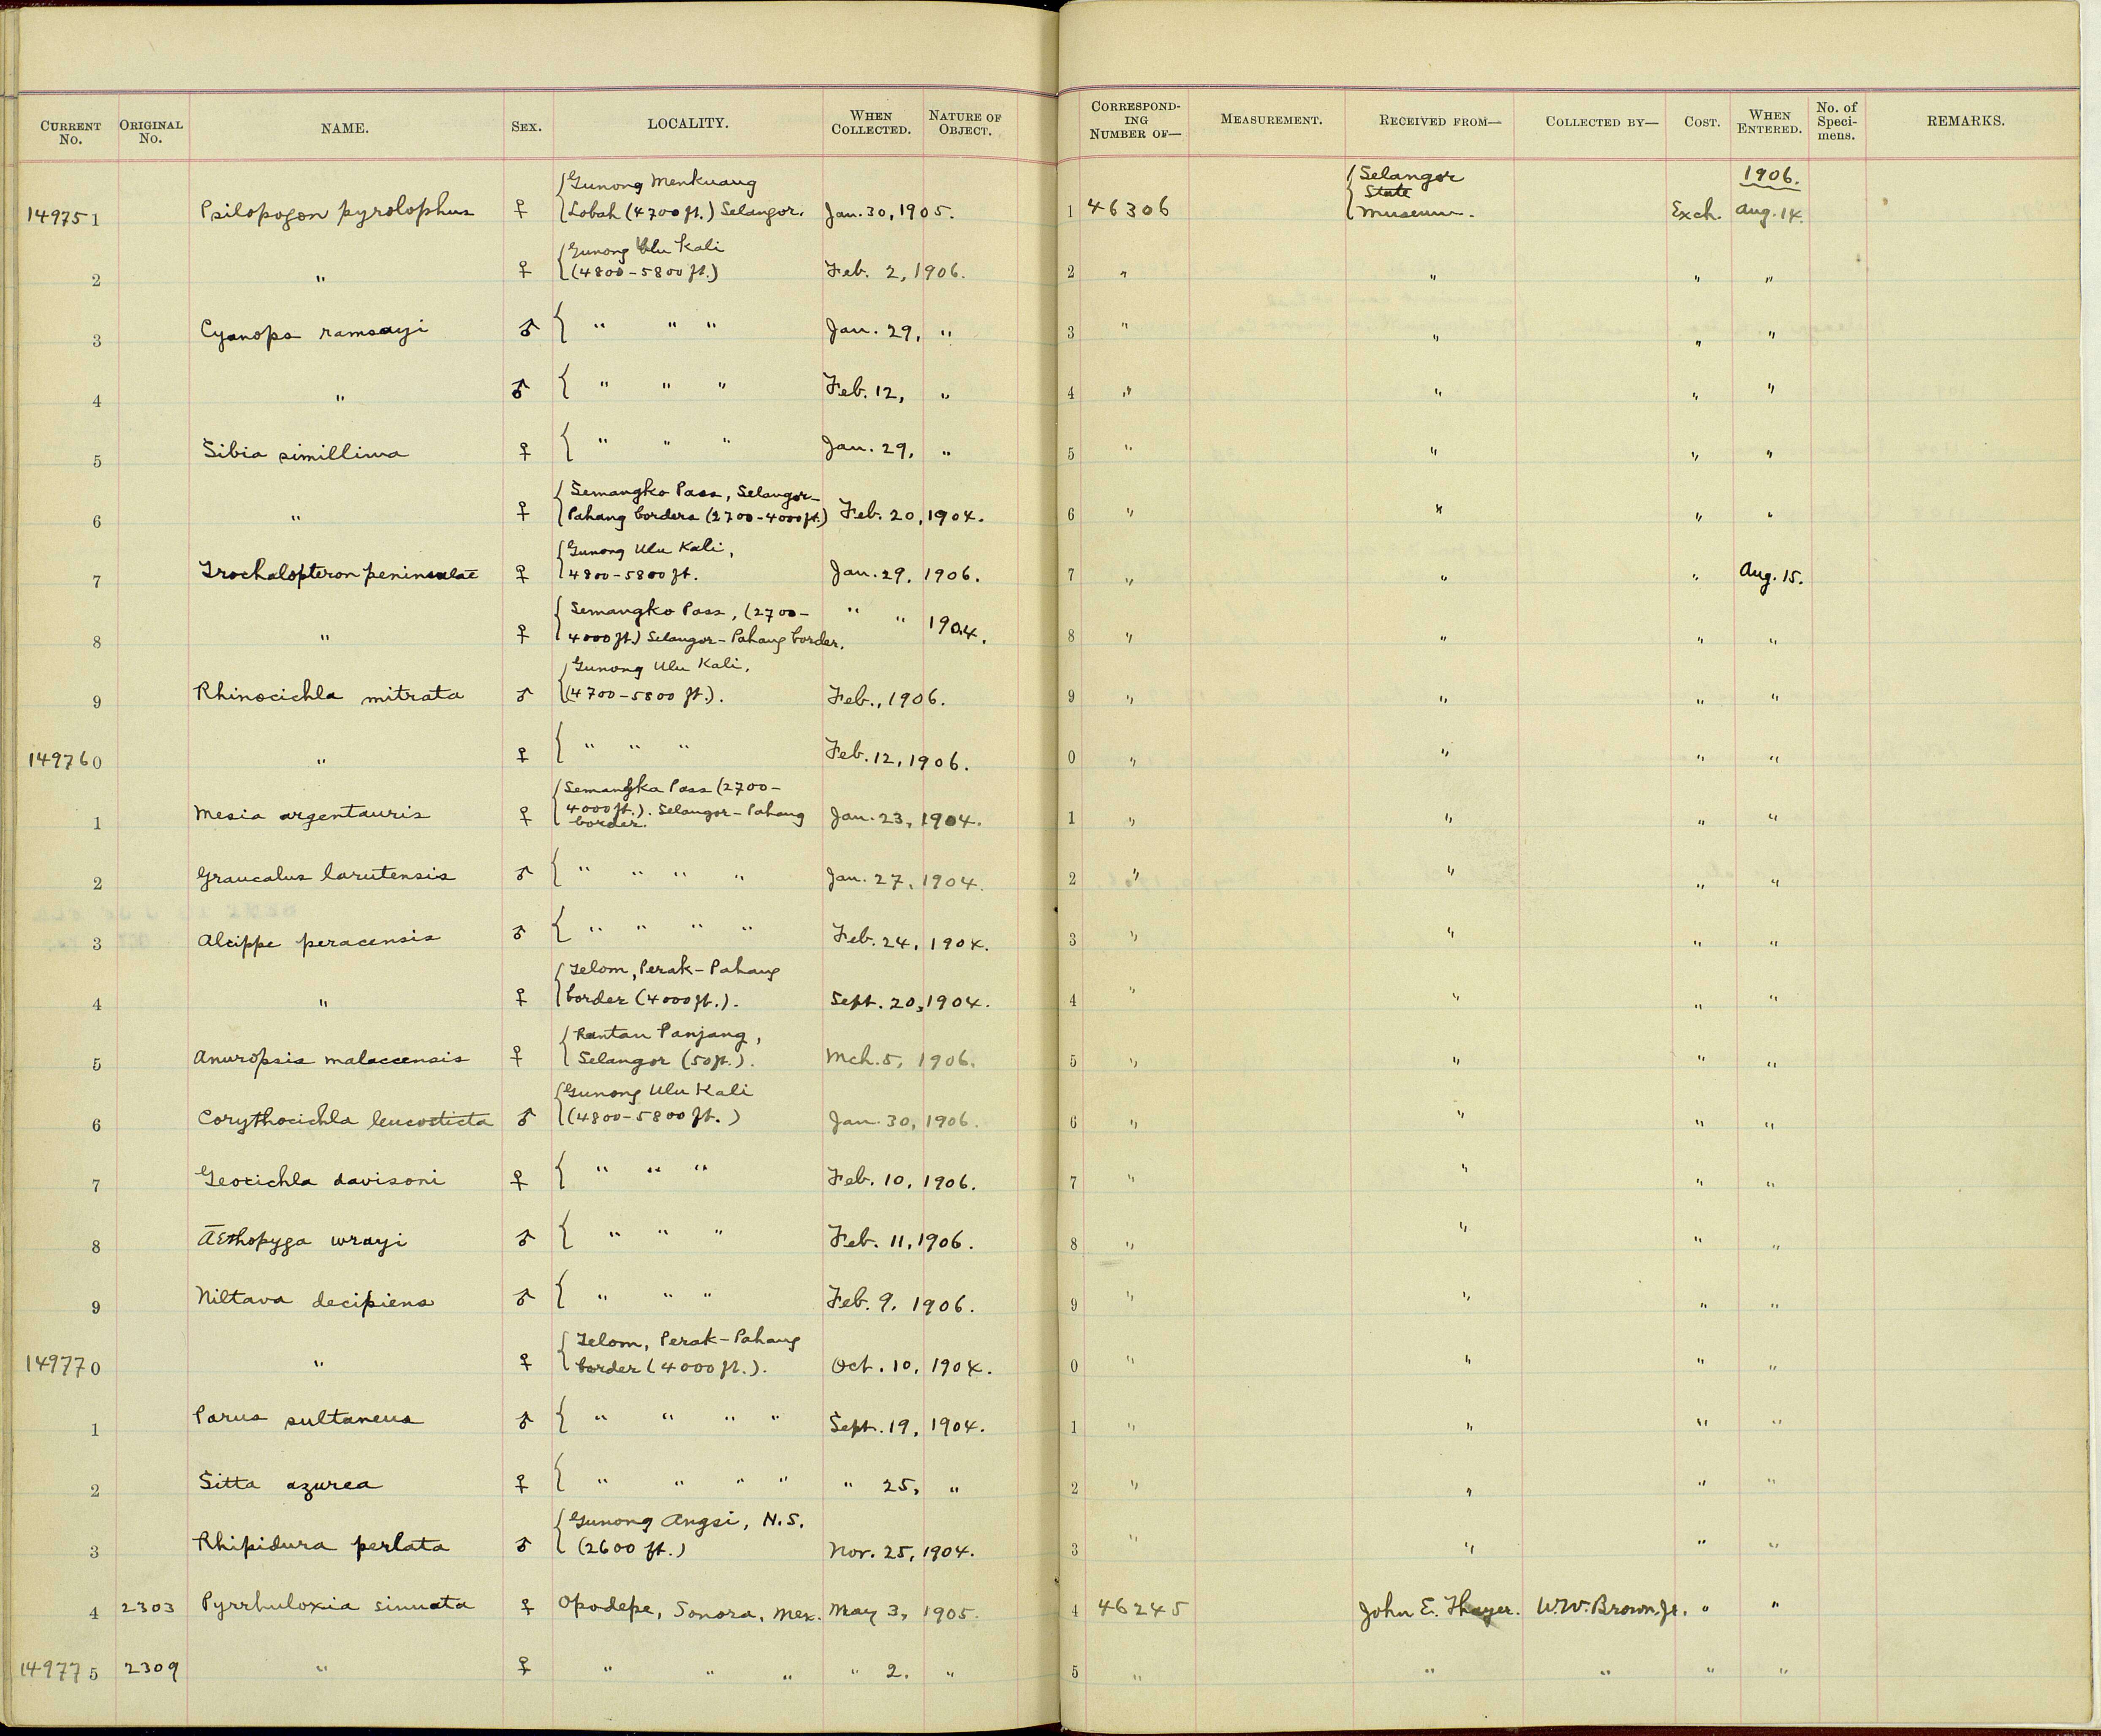 CURRENT No. ORIGINAL No. NAME. SEX. LOCALITY. WHEN COLLECTED. NATURE OF OBJECT. CORRESPONDING NUMBER OF— MEASUREMENT. RECEIVED FROM— COLLECTED BY— COST. WHEN ENTERED. No. of Specimens. REMARKS.
149751 Psilopogon pyrolophus ♀ Gunong Menkuang Lobah (4700 ft.) Selangor. Jan. 30, 1905. 1 46306 Selangor State Museum. Exch. 1906. Aug. 14.
2 " ♀ Gunong Ulu Kali (4800-5800 ft.) Feb. 2, 1906. 2 " " " "
3 Cyanops ramsayi ♂ " " " Jan. 29, " 3 " " " "
4 " ♂ " " " Feb. 12, " 4 " " " "
5 Sibia simillima ♀ " " " Jan. 29, " 5 " " " "
6 " ♀ Semangko Pass, Selangor-Pahang borders (2700-4000 ft.) Feb. 20, 1904. 6 " " " "
7 Trochalopteron peninsulae ♀ Gunong Ulu Kali, 4800-5800 ft. Jan. 29, 1906. 7 " " " Aug. 15.
8 " ♀ Semangko Pass, (2700-4000 ft.) Selangor-Pahang border. " " 1904. 8 " " " "
9 Rhinocichla mitrata ♂ Gunong Ulu Kali, (4700-5800 ft.). Feb., 1906. 9 " " " "
149760 " ♀ " " " Feb. 12, 1906. 0 " " " "
1 Mesia argentauris ♀ Semangka Pass (2700-4000 ft.). Selangor-Pahang border. Jan. 23, 1904. 1 " " " "
2 Graucalus larutensis ♂ " " " " Jan. 27, 1904. 2 " " " "
3 Alcippe peracensis ♂ " " " " Feb. 24, 1904. 3 " " " "
4 " ♀ Telom, Perak-Pahang border (4000 ft.). Sept. 20, 1904. 4 " " " "
5 Anuropsis malaccensis ♀ Rantau Panjang, Selangor (50 ft.). Mch. 5, 1906. 5 " " " "
6 Corythocichla leucosticta ♂ Gunong Ulu Kali (4800-5800 ft.) Jan. 30, 1906. 6 " " " "
7 Geocichla davisoni ♀ " " " Feb. 10, 1906. 7 " " " "
8 Æthopyga wrayi ♂ " " " Feb. 11, 1906. 8 " " " "
9 Niltava decipiens ♂ " " " Feb. 9, 1906. 9 " " " "
149770 " ♀ Telom, Perak-Pahang border (4000 ft.). Oct. 10, 1904. 0 " " " "
1 Parus sultaneus ♂ " " " " Sept. 19, 1904. 1 " " " "
2 Sitta azurea ♀ " " " " " 25, " 2 " " " "
3 Rhipidura perlata ♂ Gunong Angsi, N.S. (2600 ft.) Nov. 25, 1904. 3 " " " "
4 2303 Pyrrhuloxia sinuata ♀ Opodepe, Sonora, Mex. May 3, 1905. 4 46245 John E. Thayer. W.W. Brown, Jr. " "
149775 2309 " ♀ " " " " 2. " 5 " " " " "